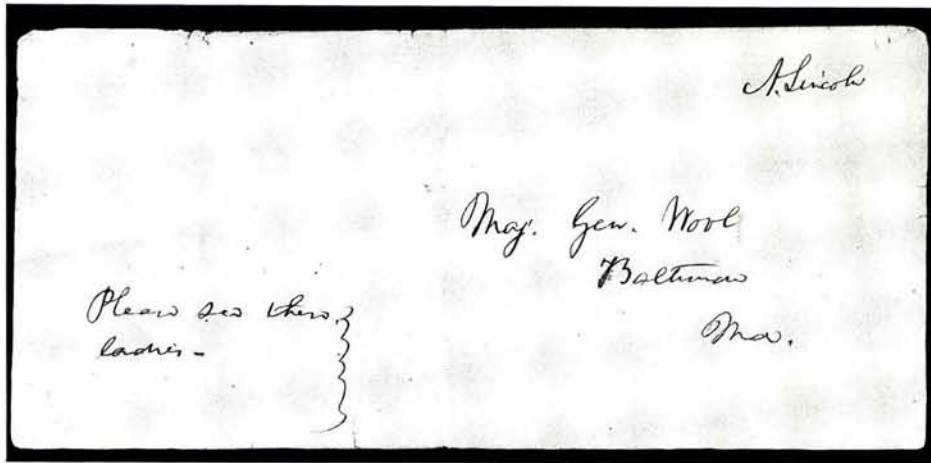 A. Lincoln
Maj. Gen. Wool
Baltimore
Md.
Please see these
ladies -